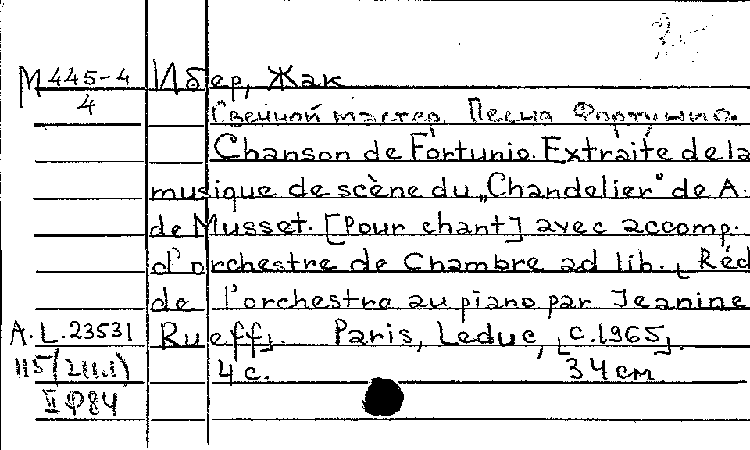 М 445-4
4
Ибер, Жак
Свечной мастер. Песня Фортунио.
Chanson de Fortunio. Extraite de la
musique de scène du „Chandelier" de A.
de Musset. [Pour chant] avec accomp.
d'orchestre de Chambre ad lib. [Réd
de l'orchestra au piano par Jeanine
Rueff]. Paris, Leduc, [c.1965].
4 с. 34 см.
A.L.23531
115/
II Ф84